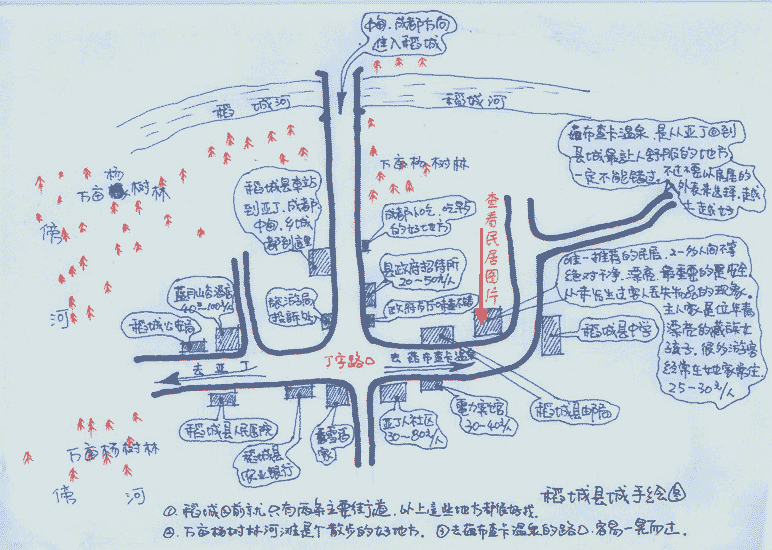 中甸、成都方向
进入稻城
稻城河
稻城河
茹布查卡温泉,是从亚丁回到
县城最让人舒服的地方
一定不能错过。不过不要以房屋的
外表来选择,越
走越好
杨
万亩树林
万亩杨树林
傍
河
稻城县车站
到亚丁、成都
中甸、乡城
都到这里
成都小吃,吃早点
的好地方
查看民居图片
县政府招待所
20~50元/人
蓝月山谷酒店
40~100元/人
旅游局
投诉处
政府餐厅味道不错
稻城公安局
唯一推荐的民居,2~多人间不等
绝对干净、漂亮,最重要的是安全
从来没发生过客人丢失物品的现象。
主人家是位年青
漂亮的藏族女
孩子,很多游客
经常在她家常住
25~30元/人
稻城县中学
丁字路口
去茹布查卡温泉
去亚丁
稻城县人民医院
稻城县
农业银行
亚丁人社区
30~80元/人
电力宾馆
30~40元/人
稻城县邮局
万亩杨树林
傍河
稻城县城手绘图
①、稻城目前就只有两条主要街道,以上这些地方都很好找。
②、万亩杨树林河滩是个散步的好地方。③去茹布查卡温泉的路口,容易一晃而过。